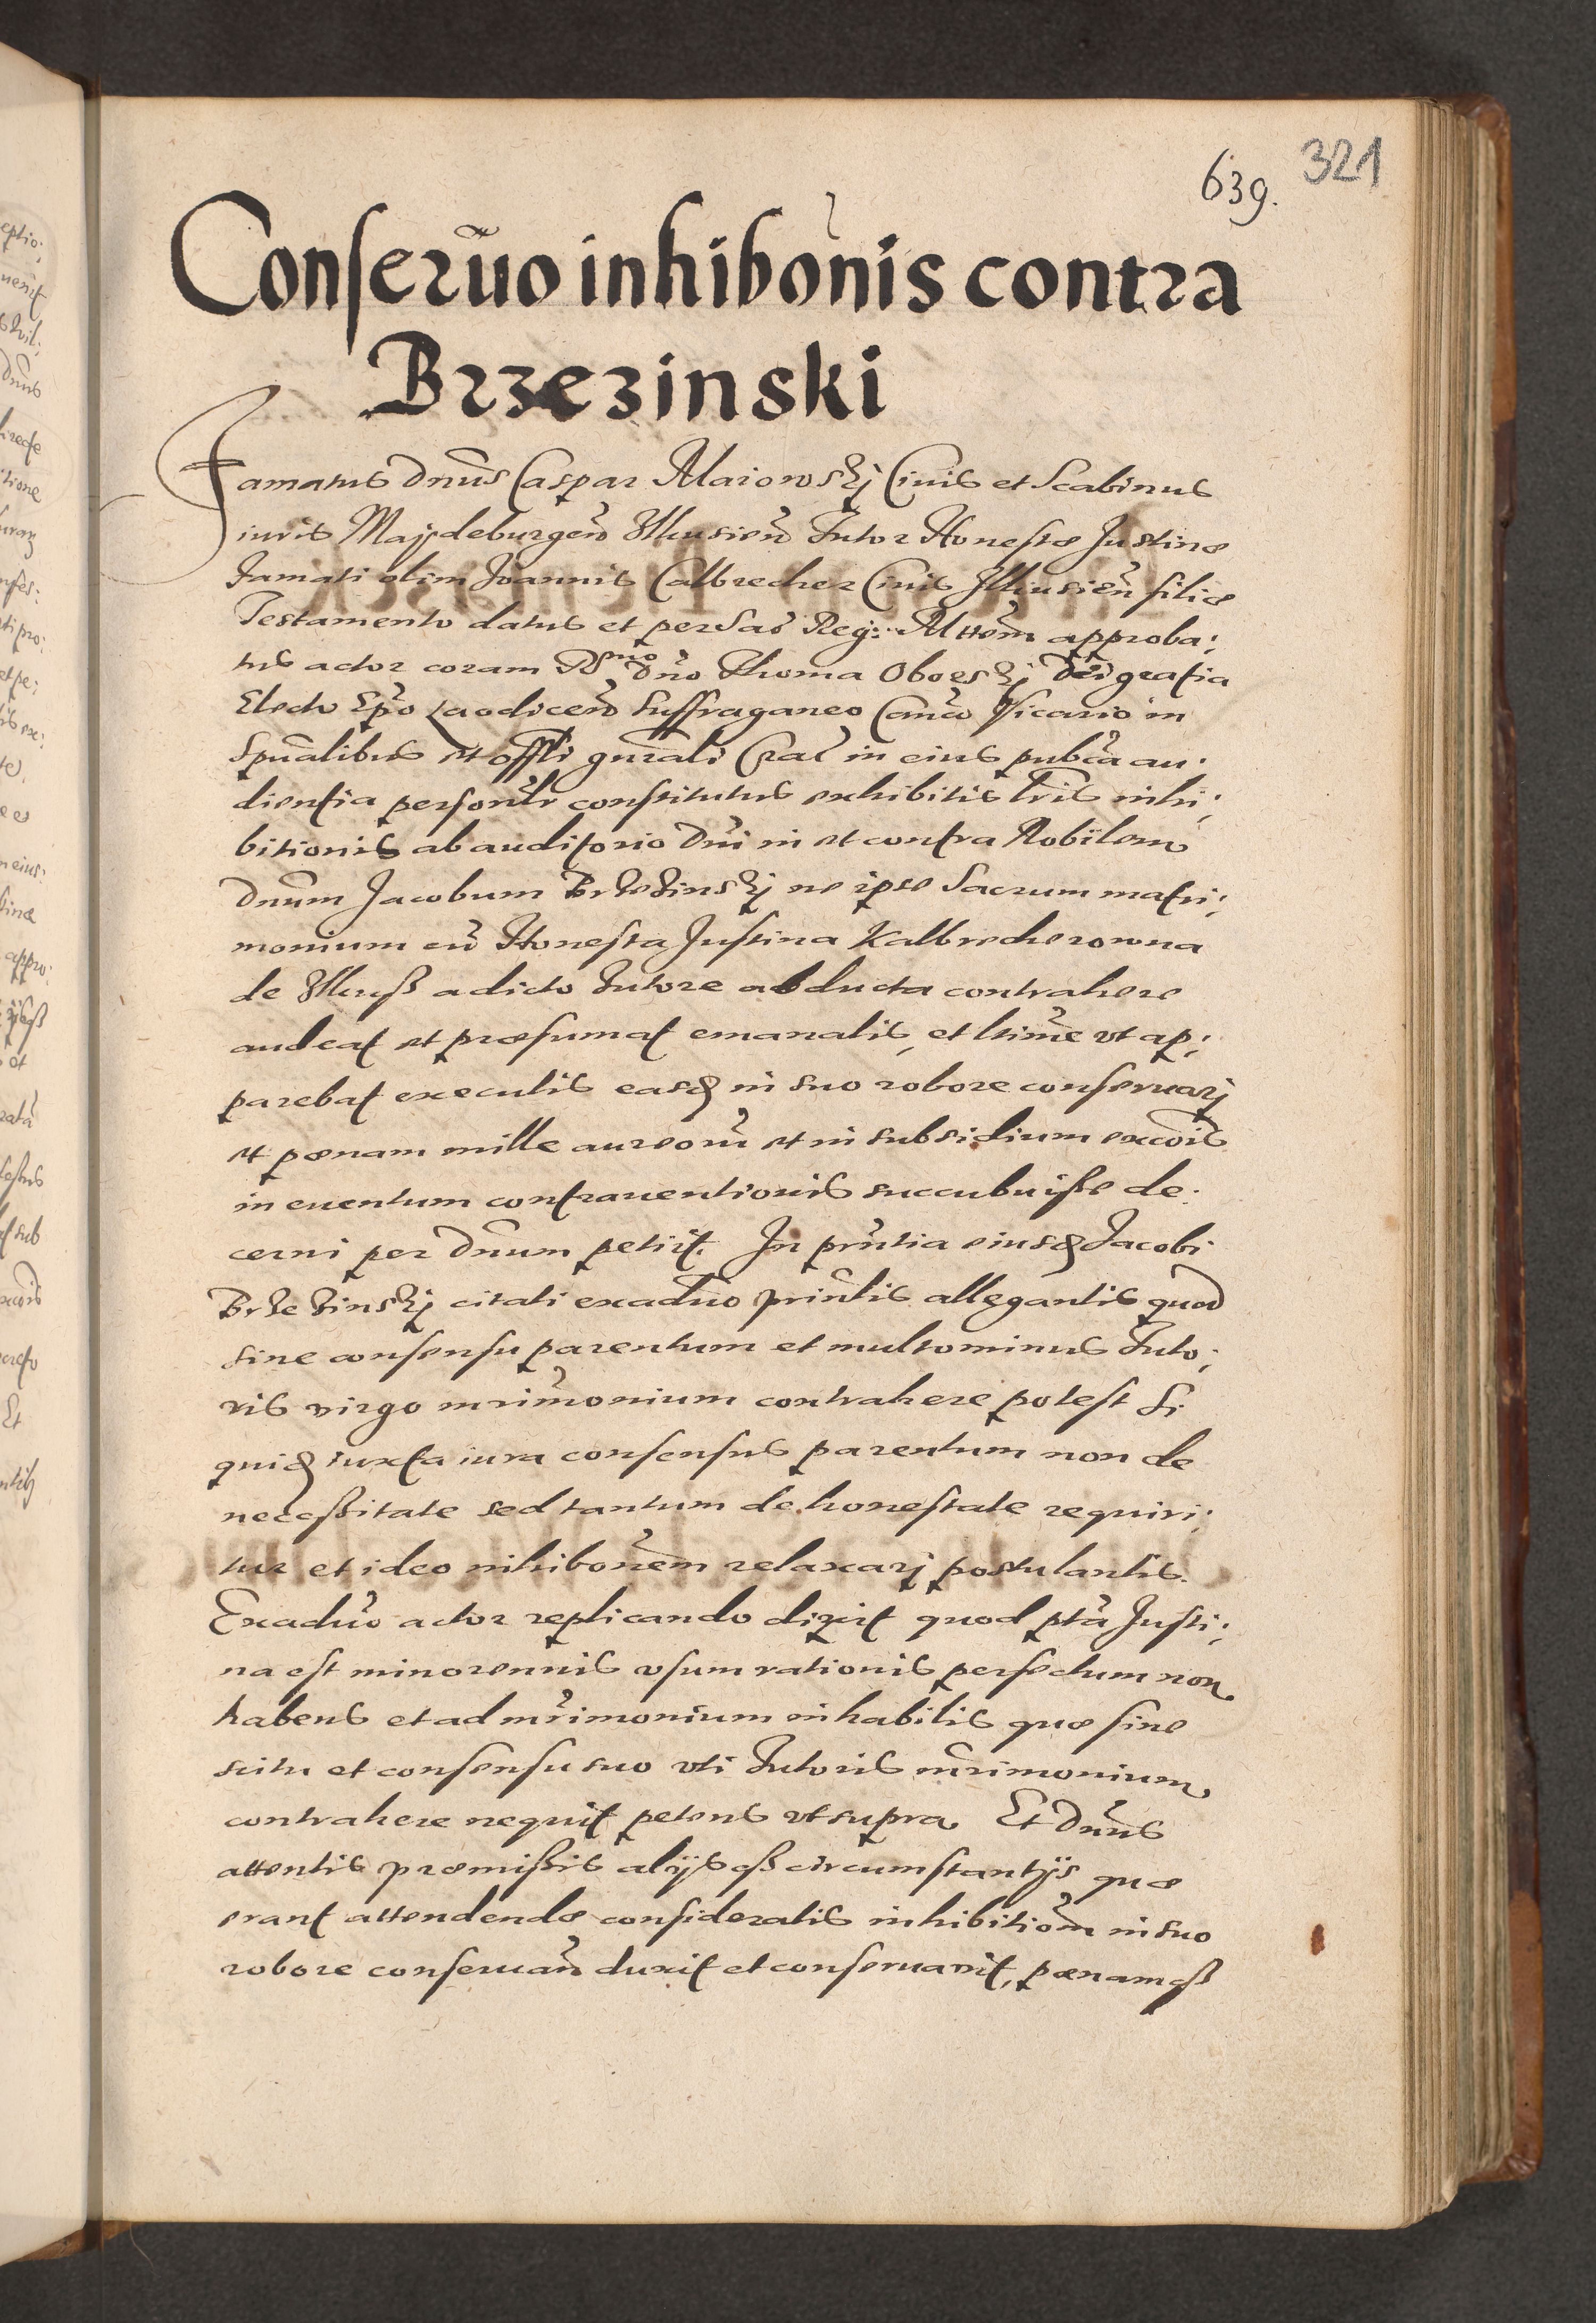 639. 321
Conseruo inhibonis contra
Brzezinski
Famatus Dnus Caspar Maiowskj Ciuis et Scabinus
iuris Majdeburgen Ilkusien Tutor Honestæ Justinæ
Famati olim Joannis Calbrecher Ciuis Ilkusien filiæ
Testamento datus et per Sac Reg: Mttem approba;
tus actor coram Rsmo dno Thoma Oborskj Dei gratia
Electo Epo Laodicen Suffraganeo Canco Vicario in
Spualibus et offli gnrali Crac in eius pubca au;
dientia personlr constitutus exhibitis lris inhi;
bitionis ab auditorio Dni in et contra Nobilem
Dnum Jacobum Brzezinskj ne ipse Sacrum matri;
monium cu Honesta Justina Kalbrecherowna
de Ilkuss a dicto Tutore abducta contrahere
audeat et præsumat emanatis, et ltime vt ap;
parebat executis easd in suo robore conseruarj
et pænam mille aureoru et in subsidium excois
in euentum contrauentionis succubuisse de:
cerni per Dnum petijt. In pntia eiusd Jacobi
Brzezinskj citati exaduo prinlis allegantis quod
sine consensu parentum et multominus Tuto;
ris virgo mrimonium contrahere potest Si
quid iuxta iura consensus parentum non de
necessitate sed tantum de honestate requiri;
tur et ideo inhibonem relaxarj postulantis.
Exaduo actor replicando dixit quod pta Justi;
na est minorennis vsum rationis perfectum non
habens et ad mrimonium inhabilis quæ sine
scitu et consensu suo vti Tutoris mrimonium
contrahere nequit petens vt supra Et Dnus
attentis præmissis alijsq circumstantijs quæ
erant attendendæ consideratis inhibitiom in suo
robore conseruan duxit et conseruauit, pænamq